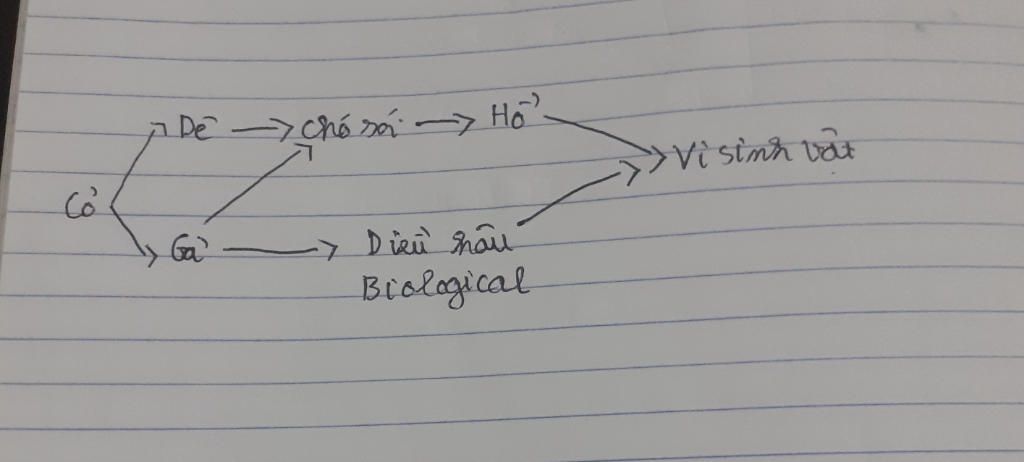 Dê → Chó sói → Hổ
Vi sinh vật
Cỏ
Gà → Diều hâu
Biological